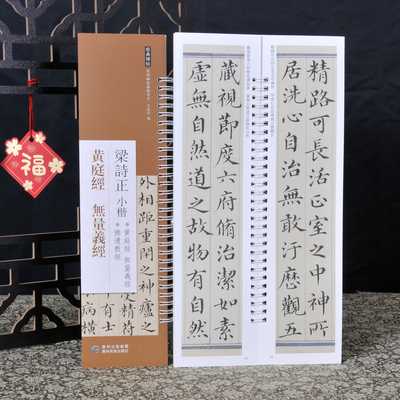 福
梁詩正 小楷
+黃庭經 無量義經
+佛遺教經
黃庭經 無量義經
外相距重閉之神廬之
有士
病橫
精路可長活正室之中神所
居洗心自治無敢汙歷觀五
藏視節度六府脩治潔如素
虛無自然道之故物有自然